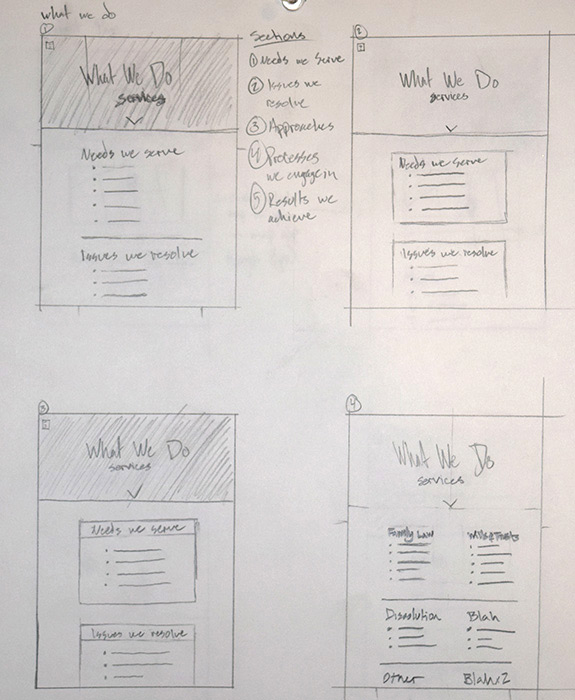 what we do
1
What We Do
services
Needs we serve
Issues we resolve
Sections
1 Needs we serve
2 Issues we
resolve
3 Approaches
4 Processes
we engage in
5 Results we
achieve
2
What We Do
services
Needs we serve
Issues we resolve
3
What We Do
services
Needs we serve
Issues we resolve
4
What We Do
services
Family Law
Dissolution
Blah
Other
Blah 2